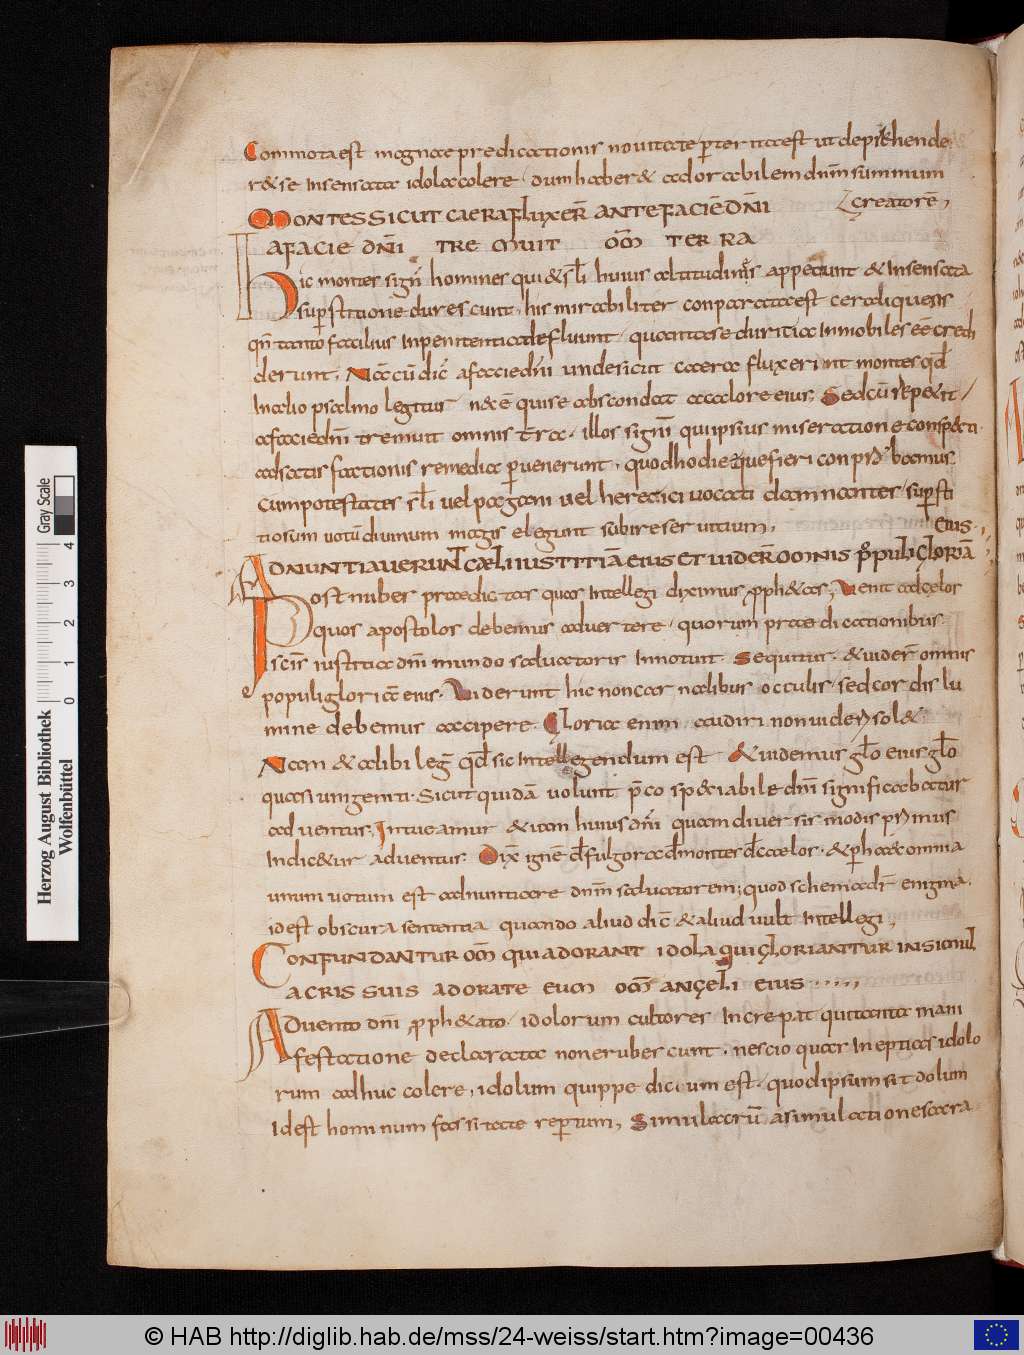 Commota est magnae predicationis novitate p̄territa est ut depr&henda
r&se Insensata idola colere dum haber& adorabilem dn̄m summum
creatorē,
MONTES SICUT CAERA FLUXER̄ ANTE FACIĒ DN̄I
A FACIE DN̄I TREMUIT OM̄ TERRA
hic montes sign̄ homines qui & sc̄li huius altitudinis appetunt & Insensata
sup̄stitione durescunt, his mirabiliter conparata est cera liquens
qn̄ tanto facilius Inpenitentia defluunt quanta se duritia Inmobiles eē credi
derunt, Nā cū dic̄ a facie dn̄i undesicut caera fluxerunt montes qd̄
In alio psalmo legitur n̄ ē qui se abscondat a calore eius; Sed cū rep&it
a facie dn̄i tremuit omnis t̄ra, illos sign̄ qui ipsius miseratione conspecti
ad satisfactionis remedia p̄venerunt, quod hodieque fieri conprobamus
cum potestates sc̄li vel pagani vel heretici vocati damnantes sup̄sti
tiosum votū divinum magis elegunt subire servitium,
EIUS
ADNUNTIAVERUNT CAELI IUSTITIĀ EIUS ET VIDER̄ OMNIS POPULI GLORIĀ
Post nubes praedictas quas Intellegi diximus proph&as, Venit ad celos
quos apostolos debemus advertere quorum praedicationibus
scīs iustitia dn̄i mundo salvatoris Innotuit. Sequitur. & vider̄ omnis
populi gloriā eius. Viderunt hic non carnalibus oculis sed cordis lu
mine debemus accipere. Gloria enim audiri non videri sol&
Nam & alibi leg̃ qd̄ sic Intellegendum est & videmus glo eius glo
quasi unigeniti. Sicut quidā volunt p̄co speciabile dn̄i significabatur
adventus. Intueamur & iam huius dn̄i quam diversis modis primus
Indic&ur adventus. Dix̄ ignē d̄ fulgora d̄ montes d̄ caelos & p̄ haec omnia
unum votum est adnuntiare dn̄m salvatorem; quod schema dr̄ enigma.
idest obscura sententia quando aliud dic̄ & aliud vult Intellegi,
CONFUNDANTUR OM̄ QUI ADORANT IDOLA QUI GLORIANTUR IN SIMUL
ACRIS SUIS ADORATE EUM OM̄ ANGELI EIUS
Advento dn̄i proph&ato idolorum cultores Increpat qui tanta mani
festatione declarata non erubescunt, nescio quas Ineptias idolo
rum adhuc colere, idolum quippe dictum est quod ipsum sit dolum
Idest hominum falsitate rep̄tum, Simulacrū a simulatione sacra
Herzog August Bibliothek
Wolfenbüttel
Gray Scale
0 1 2 3 4
© HAB http://diglib.hab.de/mss/24-weiss/start.htm?image=00436